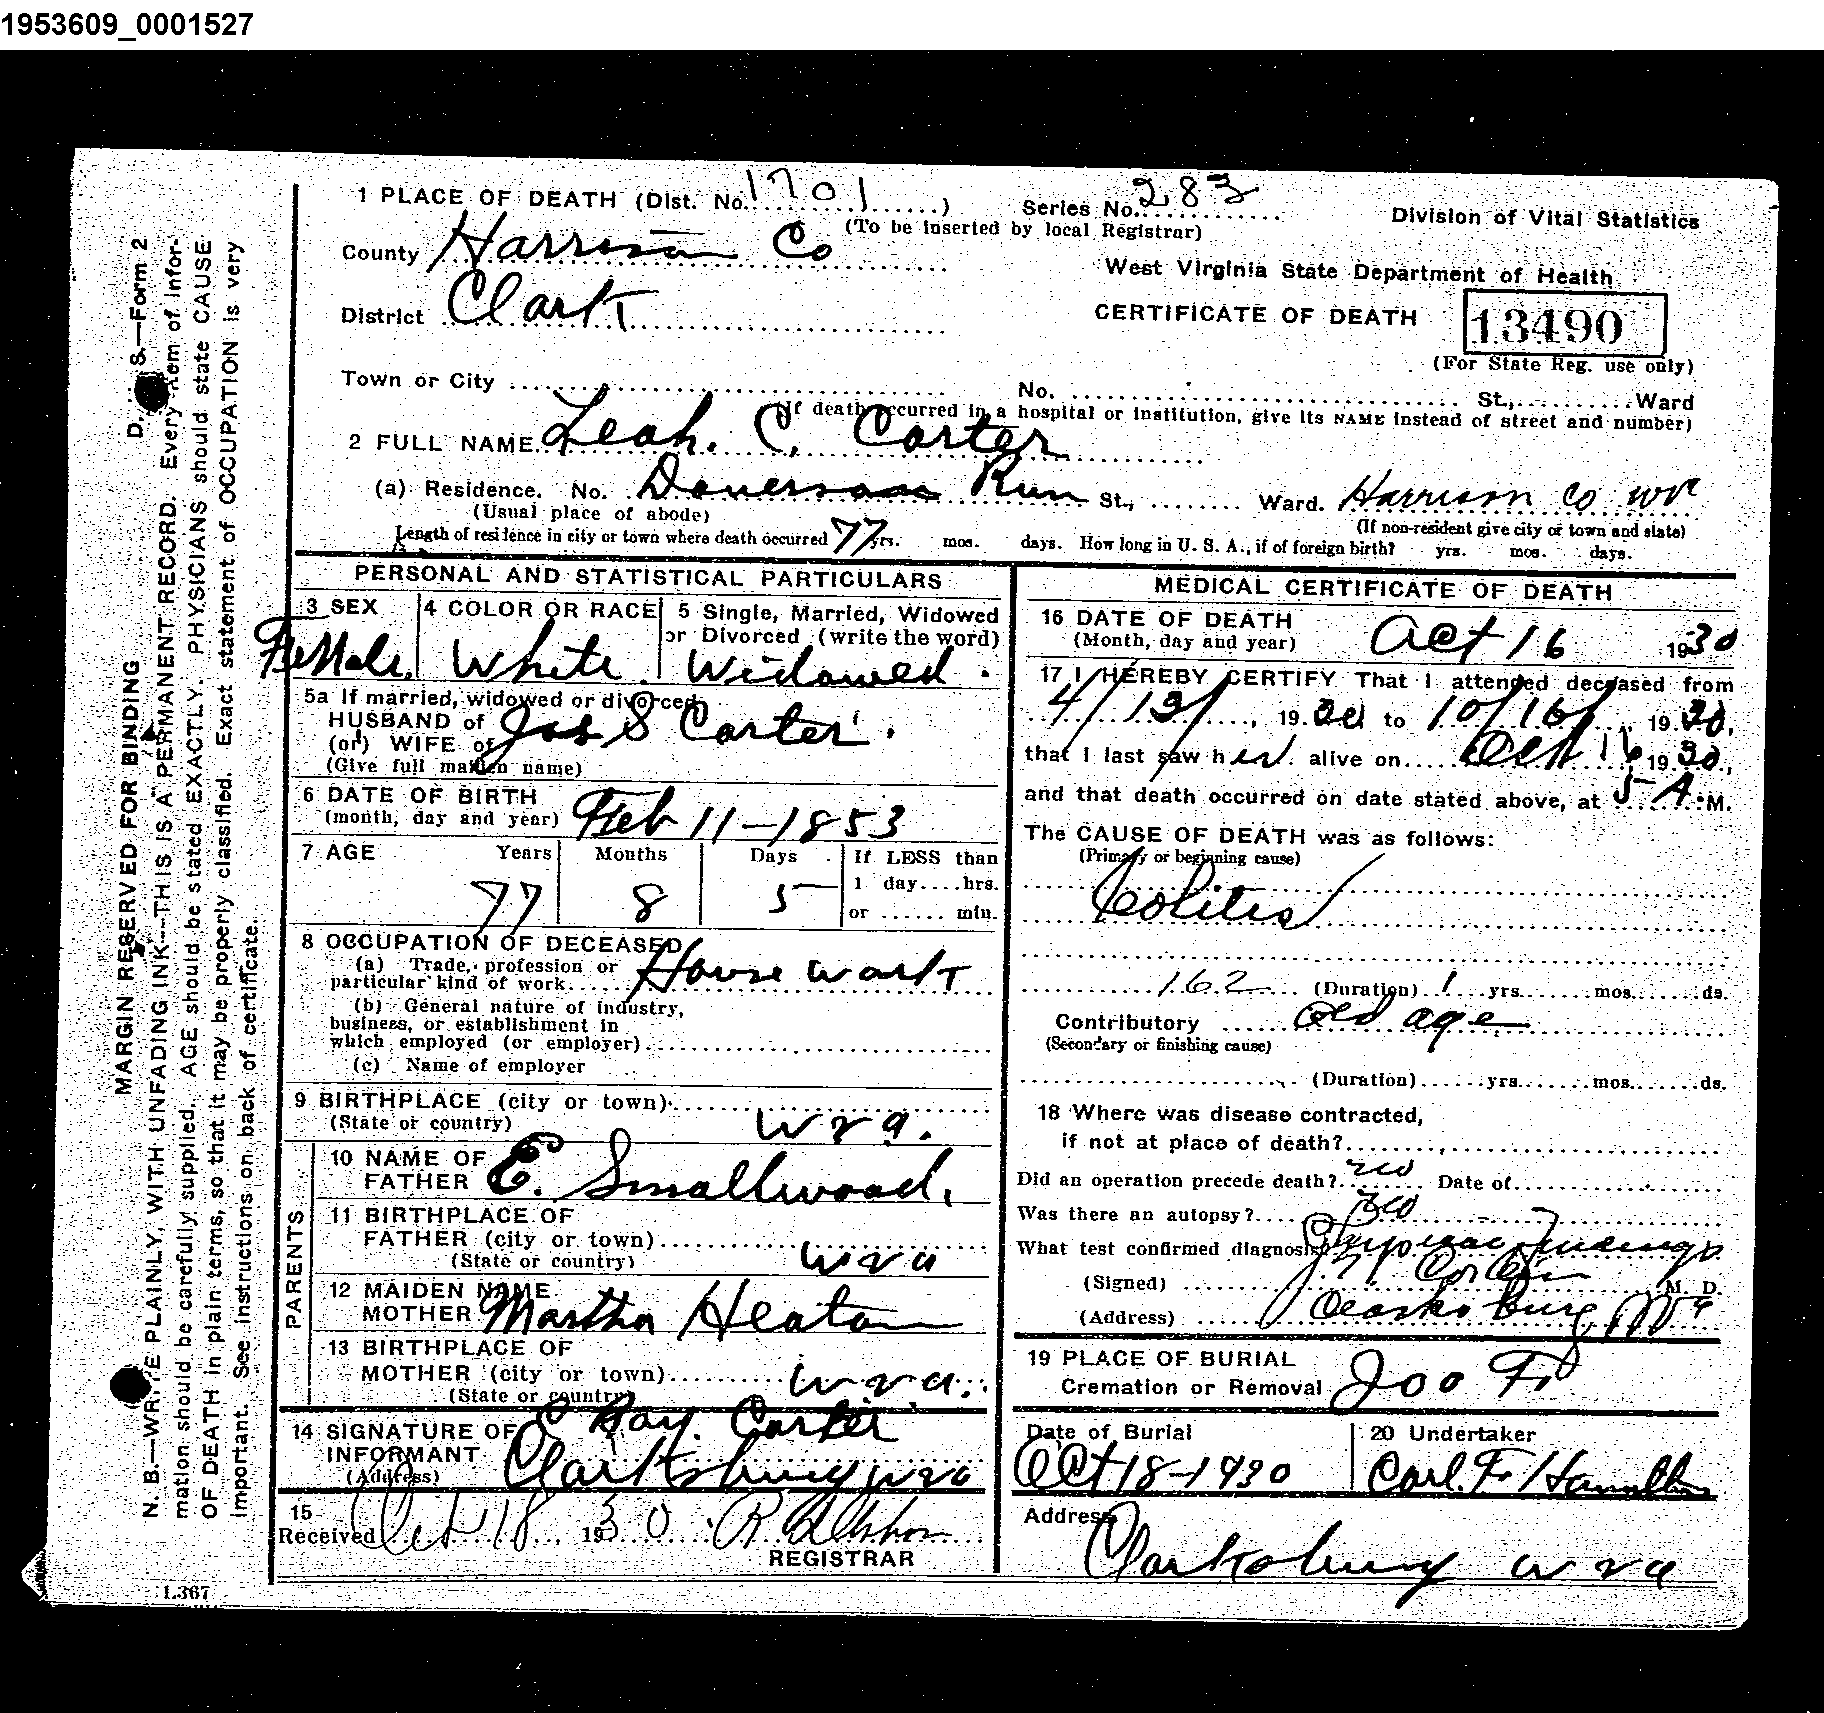 1953609_0001527
1 PLACE OF DEATH (Dist. No. 1701) Series No. 283 Division of Vital Statistics
(To be inserted by local Registrar)
County Harrison Co
West Virginia State Department of Health
District Clark
CERTIFICATE OF DEATH 13490
(For State Reg. use only)
Town or City No. St., Ward
(If death occurred in a hospital or institution, give its NAME instead of street and number)
2 FULL NAME Leah. C. Carter
(a) Residence. No. Run St., Ward. Harrison Co WV
(Usual place of abode) (If non-resident give city or town and state)
Length of residence in city or town where death occurred 77 yrs. mos. days. How long in U. S. A., if of foreign birth? yrs. mos. days.
PERSONAL AND STATISTICAL PARTICULARS
3 SEX 4 COLOR OR RACE 5 Single, Married, Widowed
or Divorced (write the word)
Female White. Widowed.
5a If married, widowed or divorced
HUSBAND of Jas S Carter.
(or) WIFE of
(Give full maiden name)
6 DATE OF BIRTH
(month, day and year) Feb 11-1853
7 AGE Years Months Days If LESS than
1 day....hrs.
77 8 5
or ...... min.
8 OCCUPATION OF DECEASED
(a) Trade, profession or
particular kind of work House work
(b) General nature of industry,
business, or establishment in
which employed (or employer)
(c) Name of employer
9 BIRTHPLACE (city or town)
(State or country) W va.
PARENTS
10 NAME OF
FATHER E. Smallwood.
11 BIRTHPLACE OF
FATHER (city or town)
(State or country) W va
12 MAIDEN NAME
MOTHER Martha Heaton
13 BIRTHPLACE OF
MOTHER (city or town) W va.
(State or country)
14 SIGNATURE OF C Ray. Carter
INFORMANT
(Address) Clarksburg W va
15
Received Oct 18 1930
REGISTRAR
MEDICAL CERTIFICATE OF DEATH
16 DATE OF DEATH
(Month, day and year) Oct 16 1930
17 I HEREBY CERTIFY That I attended deceased from
4/13/, 1930 to 10/16/, 1930,
that I last saw her alive on Oct 16 1930,
and that death occurred on date stated above, at 5 A. M.
The CAUSE OF DEATH was as follows:
(Primary or beginning cause)
Colitis
162 (Duration) 1 yrs. mos. ds.
Contributory Old age
(Secondary or finishing cause)
(Duration) yrs. mos. ds.
18 Where was disease contracted,
if not at place of death?
Did an operation precede death? no Date of
Was there an autopsy? no
What test confirmed diagnosis?
(Signed) Corbin M. D.
(Address) Clarksburg W Va
19 PLACE OF BURIAL
Cremation or Removal IOOF
Date of Burial 20 Undertaker
Oct 18-1930 Carl. F.
Address
Clarksburg W va
MARGIN RESERVED FOR BINDING D. S.—Form 2
N. B.—WRITE PLAINLY, WITH UNFADING INK—THIS IS A PERMANENT RECORD. Every item of infor-
mation should be carefully supplied. AGE should be stated EXACTLY. PHYSICIANS should state CAUSE
OF DEATH in plain terms, so that it may be properly classified. Exact statement of OCCUPATION is very
important. See instructions on back of certificate.
1.367